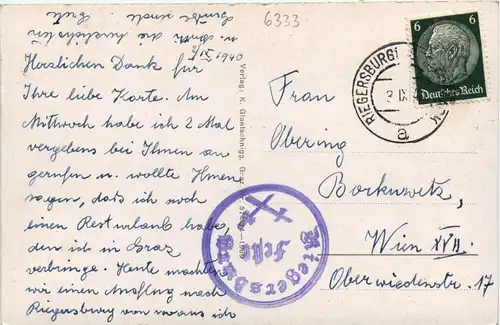 6333
3/IX 1940
Herzlichen Dank für
Ihre liebe Karte. Am
Mittwoch habe ich 2 Mal
vergebens bei Ihnen an
gerufen u. wollte Ihnen
sagen, daß ich noch
einen Resturlaub habe,
den ich in Graz
verbringe. Heute machten
wir einen Ausflug nach
Riegersburg von wo aus ich
Verlag: K. Glantschnigg, Graz
Frau
Obering
Borkowetz,
Wien XVII.
Oberwiedenstr. 17
6 6
Deutsches Reich
RIEGERSBURG
3. IX.
a
Riegersburg